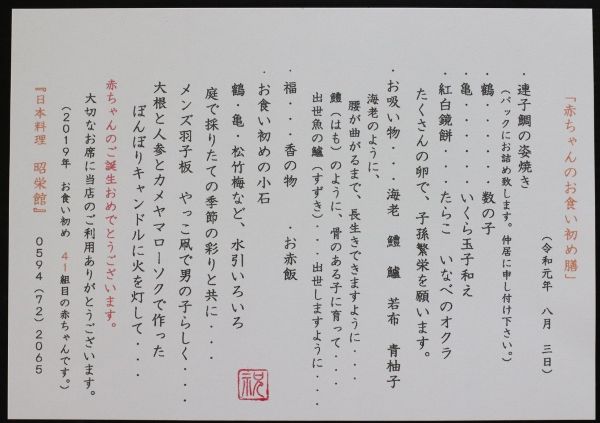 「赤ちゃんのお食い初め膳」
（令和元年　八月　三日）
・連子鯛の姿焼き
（パックにお詰め致します。仲居に申し付け下さい。）
・鶴・・・・・・数の子
・亀・・・・・・いくら玉子和え
・紅白鏡餅・・・たらこ　いなべのオクラ
たくさんの卵で、子孫繁栄を願います。
・お吸い物・・・海老　鱧　鱸　若布　青柚子
海老のように、
腰が曲がるまで、長生きできますように・・・
鱧（はも）のように、骨のある子に育って・・・・
出世魚の鱸（すずき）・・・出世しますように・・・・
・福・・・香の物　　・お赤飯
・お食い初めの小石
鶴・亀・松竹梅など、水引いろいろ
庭で採りたての季節の彩りと共に・・・
メンズ羽子板　やっこ凧で男の子らしく・・・・
大根と人参とカメヤマローソクで作った
ぼんぼりキャンドルに火を灯して・・・・
赤ちゃんのご誕生おめでとうございます。
大切なお席に当店のご利用ありがとうございます。
（２０１９年　お食い初め　４１組目の赤ちゃんです。）
『日本料理　昭栄館』　０５９４（７２）２０６５
祝